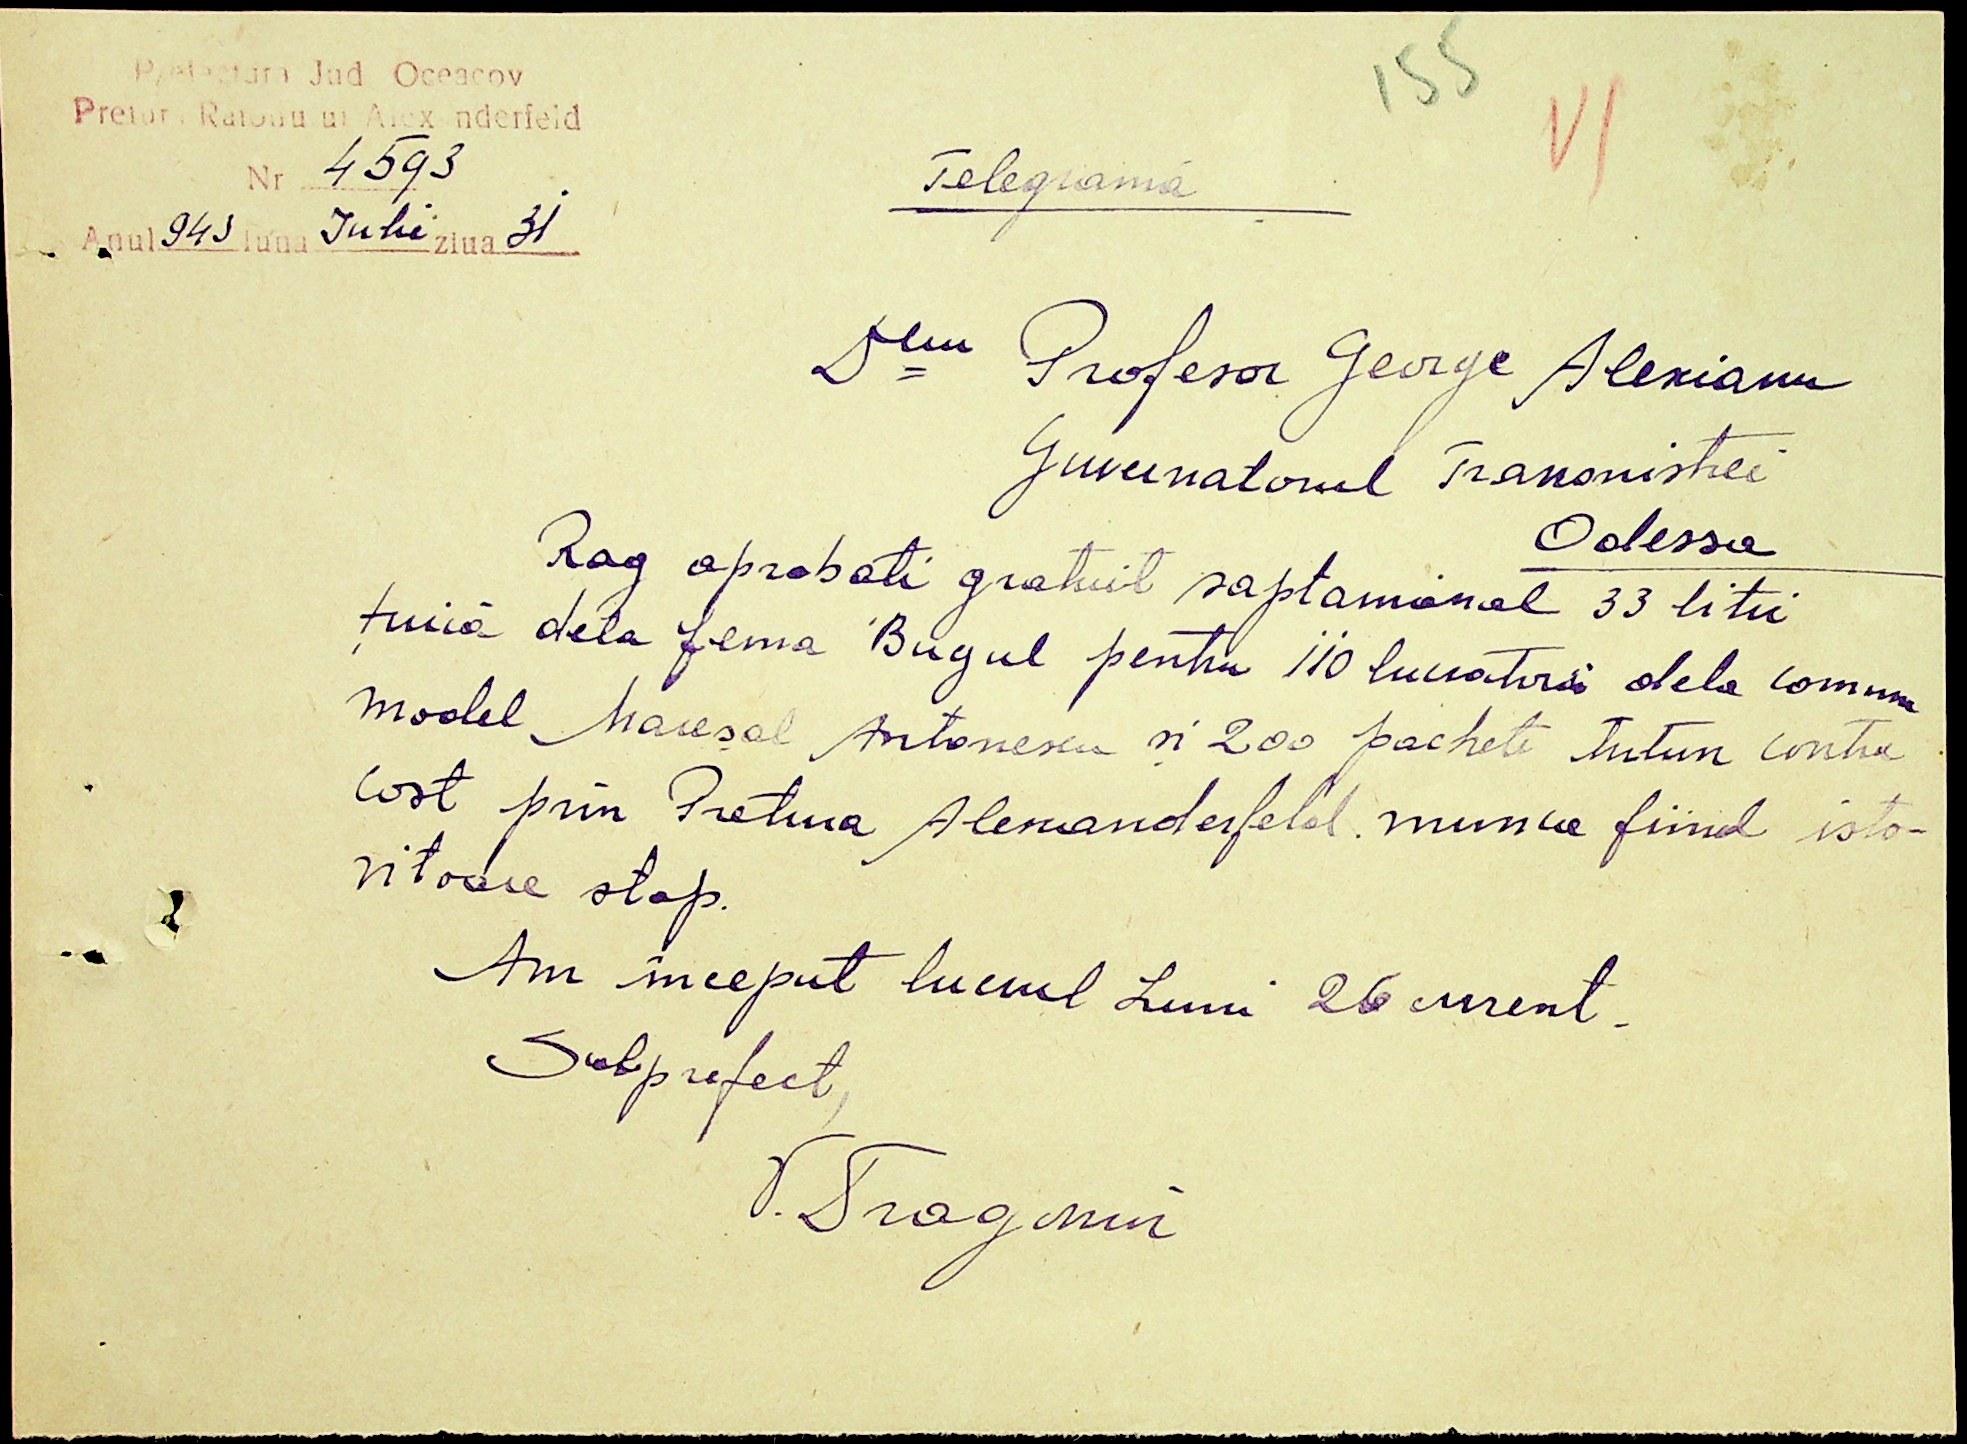 Prefectura Jud Oceacov
155
VI
Pretura Raionului Alexanderfeld
Nr 4593
Telegramă
Anul 943 luna Iulie ziua 31
Dlui Profesor George Alexianu
Guvernatorul Transnistriei
Odessa
Rog aprobati gratuit saptamânal 33 litri
țuică dela ferma Bugul pentru 110 lucratori dela comuna
model Mareșal Antonescu și 200 pachete tutun contra
cost prin Pretura Alexanderfeld. munca fiind isto-
vitoare stop.
Am început lucrul Luni 26 curent.
Subprefect,
V. Dragomir